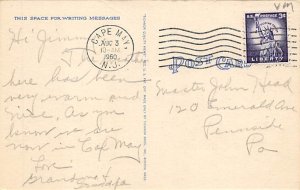 THIS SPACE FOR WRITING MESSAGES
CAPE MAY,
AUG 3
10-AM
1960
N.J.
U.S. POSTAGE 3¢
LIBERTY
POST CARD
Hi Jimmy
The
here has been
very warm and
nice. As you
know we are
now in Cape May
Love
Grandma &
Grandpa
Master John Head
120 Emerald Ave
Pennside
Pa